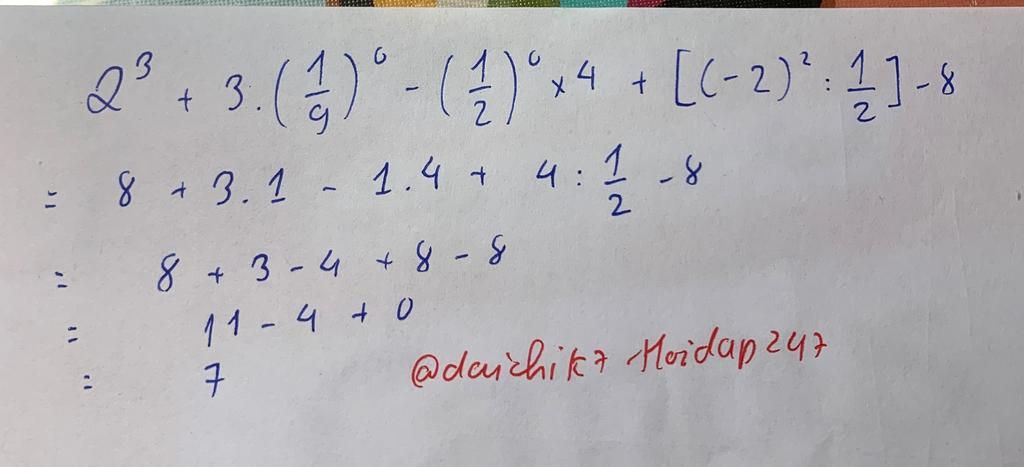 2³ + 3.(1/9)⁰ - (1/2)⁰ × 4 + [(-2)² : 1/2] - 8
= 8 + 3.1 - 1.4 + 4 : 1/2 - 8
= 8 + 3 - 4 + 8 - 8
= 11 - 4 + 0
= 7
@daichik7 Hoidap247